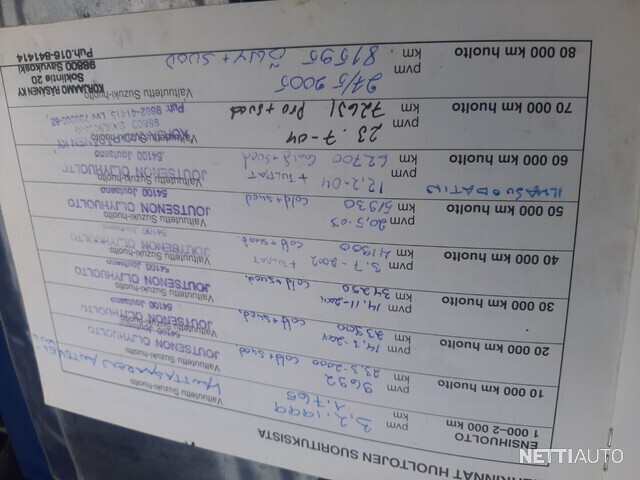 HUOLTOJEN SUORITUKSISTA
ENSIHUOLTO
1 000–2 000 km
pvm 3.2.1999
km 1.765
Valtuutettu Suzuki-huolto
10 000 km huolto
pvm 23.3-2000
km 9692
cold+suod
Valtuutettu Suzuki-huolto
JOUTSENON ÖLJYHUOLTO
54100 Joutseno
20 000 km huolto
pvm 14.3-2001
km 23900
cold+suod.
Valtuutettu Suzuki-huolto
JOUTSENON ÖLJYHUOLTO
54100 Joutseno
30 000 km huolto
pvm 14.11-2001
km 34250
cold+suod.
Valtuutettu Suzuki-huolto
JOUTSENON ÖLJYHUOLTO
54100 Joutseno
40 000 km huolto
pvm 3.7-2002
km 41900
cold+suod.
Valtuutettu Suzuki-huolto
JOUTSENON ÖLJYHUOLTO
54100 Joutseno
50 000 km huolto
pvm 20.5-03
km 51930
cold+suod
Valtuutettu Suzuki-huolto
JOUTSENON ÖLJYHUOLTO
54100 Joutseno
60 000 km huolto
ILMASUODATIN
pvm 12.2-04 + TULPAT
km 62700
Valtuutettu Suzuki-huolto
JOUTSENON ÖLJYHUOLTO
54100 Joutseno
70 000 km huolto
pvm 23.7-04
km 72631 Pro+suod
Valtuutettu Suzuki-huolto
80 000 km huolto
pvm 27/5 2005
km 81595 ÖLJY+SUOD
Valtuutettu Suzuki-huolto
KORJAAMO RÄSÄNEN KY
Sokintie 20
98800 Savukoski
Puh.016-841414
NETTIAUTO